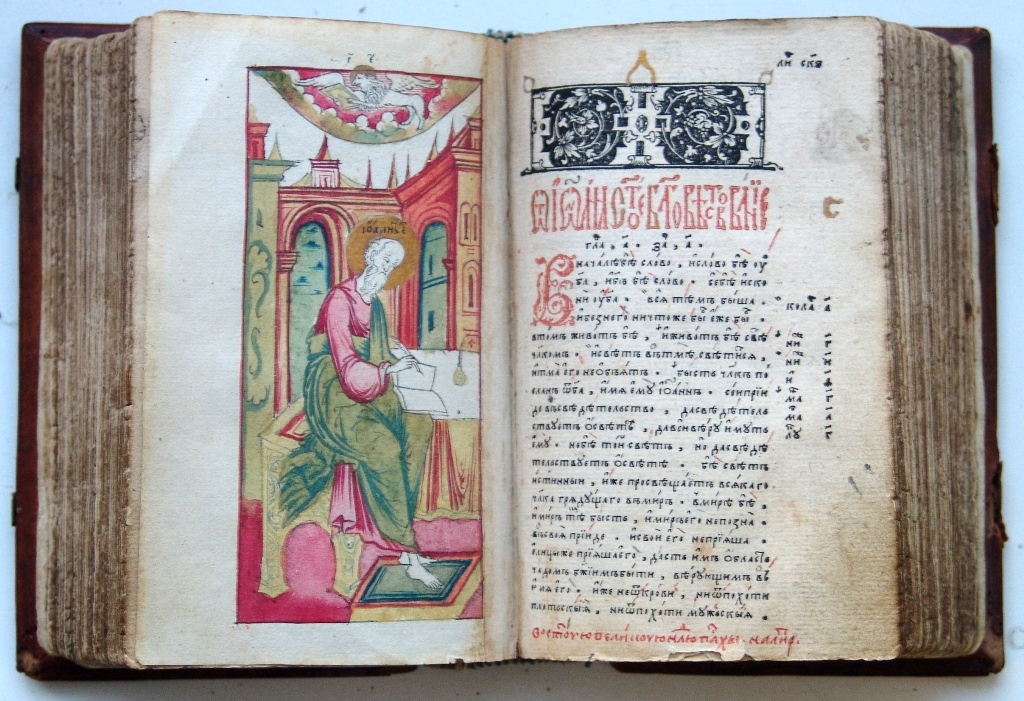 ІѠАННЪ
Ѿ ІѠА́ННА СТ҃ОЕ БЛ҃ГОВѢСТВОВАНЇЕ
глⷡ҇а, а҃ · за҃, а҃ ·
В нача́лѣ бѣ̀ сло́во, и҆ сло́во бѣ̀ оу҆
бг҃а, и҆ бг҃ъ бѣ̀ сло́во · се́ бѣ̀ и҆ско
нѝ оу҆ бг҃а · всѧ̀ тѣ́мъ бы́ша ·
и҆ без̾ него̀ ничто́же бы́сть, є҆́же бы́сть ·
в то́мъ живо́тъ бѣ̀, и҆ живо́тъ бѣ̀ свѣ́тъ
чл҃комъ · и҆ свѣ́тъ въ тмѣ̀ свѣ́титсѧ,
и҆ тма̀ є҆го̀ не ѡ҆б̾ѧ́тъ · бы́сть чл҃къ по
сланъ ѿ бг҃а, и҆́мѧ є҆мꙋ̀ і҆ѡа́ннъ · се́и прїи
де въ свѣдѣ́тельство, да свѣдѣ́тель
ствꙋетъ ѡ҆ свѣ́тѣ, да всѝ вѣ́рꙋ и҆́мꙋтъ
є҆мꙋ̀ · не бѣ̀ то́и свѣ́тъ, но да свѣдѣ́
тельствꙋетъ ѡ҆ свѣ́тѣ · бѣ̀ свѣ́тъ
и҆́стинныи, и҆́же просвѣща́етъ всѧ́каго
чл҃ка грѧдꙋ́щаго въ ми́ръ · в ми́рѣ бѣ̀,
и҆ ми́ръ тѣ́мъ бы́сть, и҆ ми́ръ є҆го̀ не позна̀ ·
въ своѧ̀ прїи́де · и҆ своѝ є҆го̀ не прїѧ́ша ·
є҆ли́цы же прїѧ́ша є҆го̀, да́стъ и҆́мъ ѻ҆́бласть
ча́домъ бж҃їимъ бы́ти, вѣ́рꙋющимъ въ
и҆́мѧ є҆го̀ · и҆́же не ѿ кро́ви, ни ѿ по́хоти
пло́тскїѧ, ни ѿ по́хоти мꙋ́жескїѧ ·